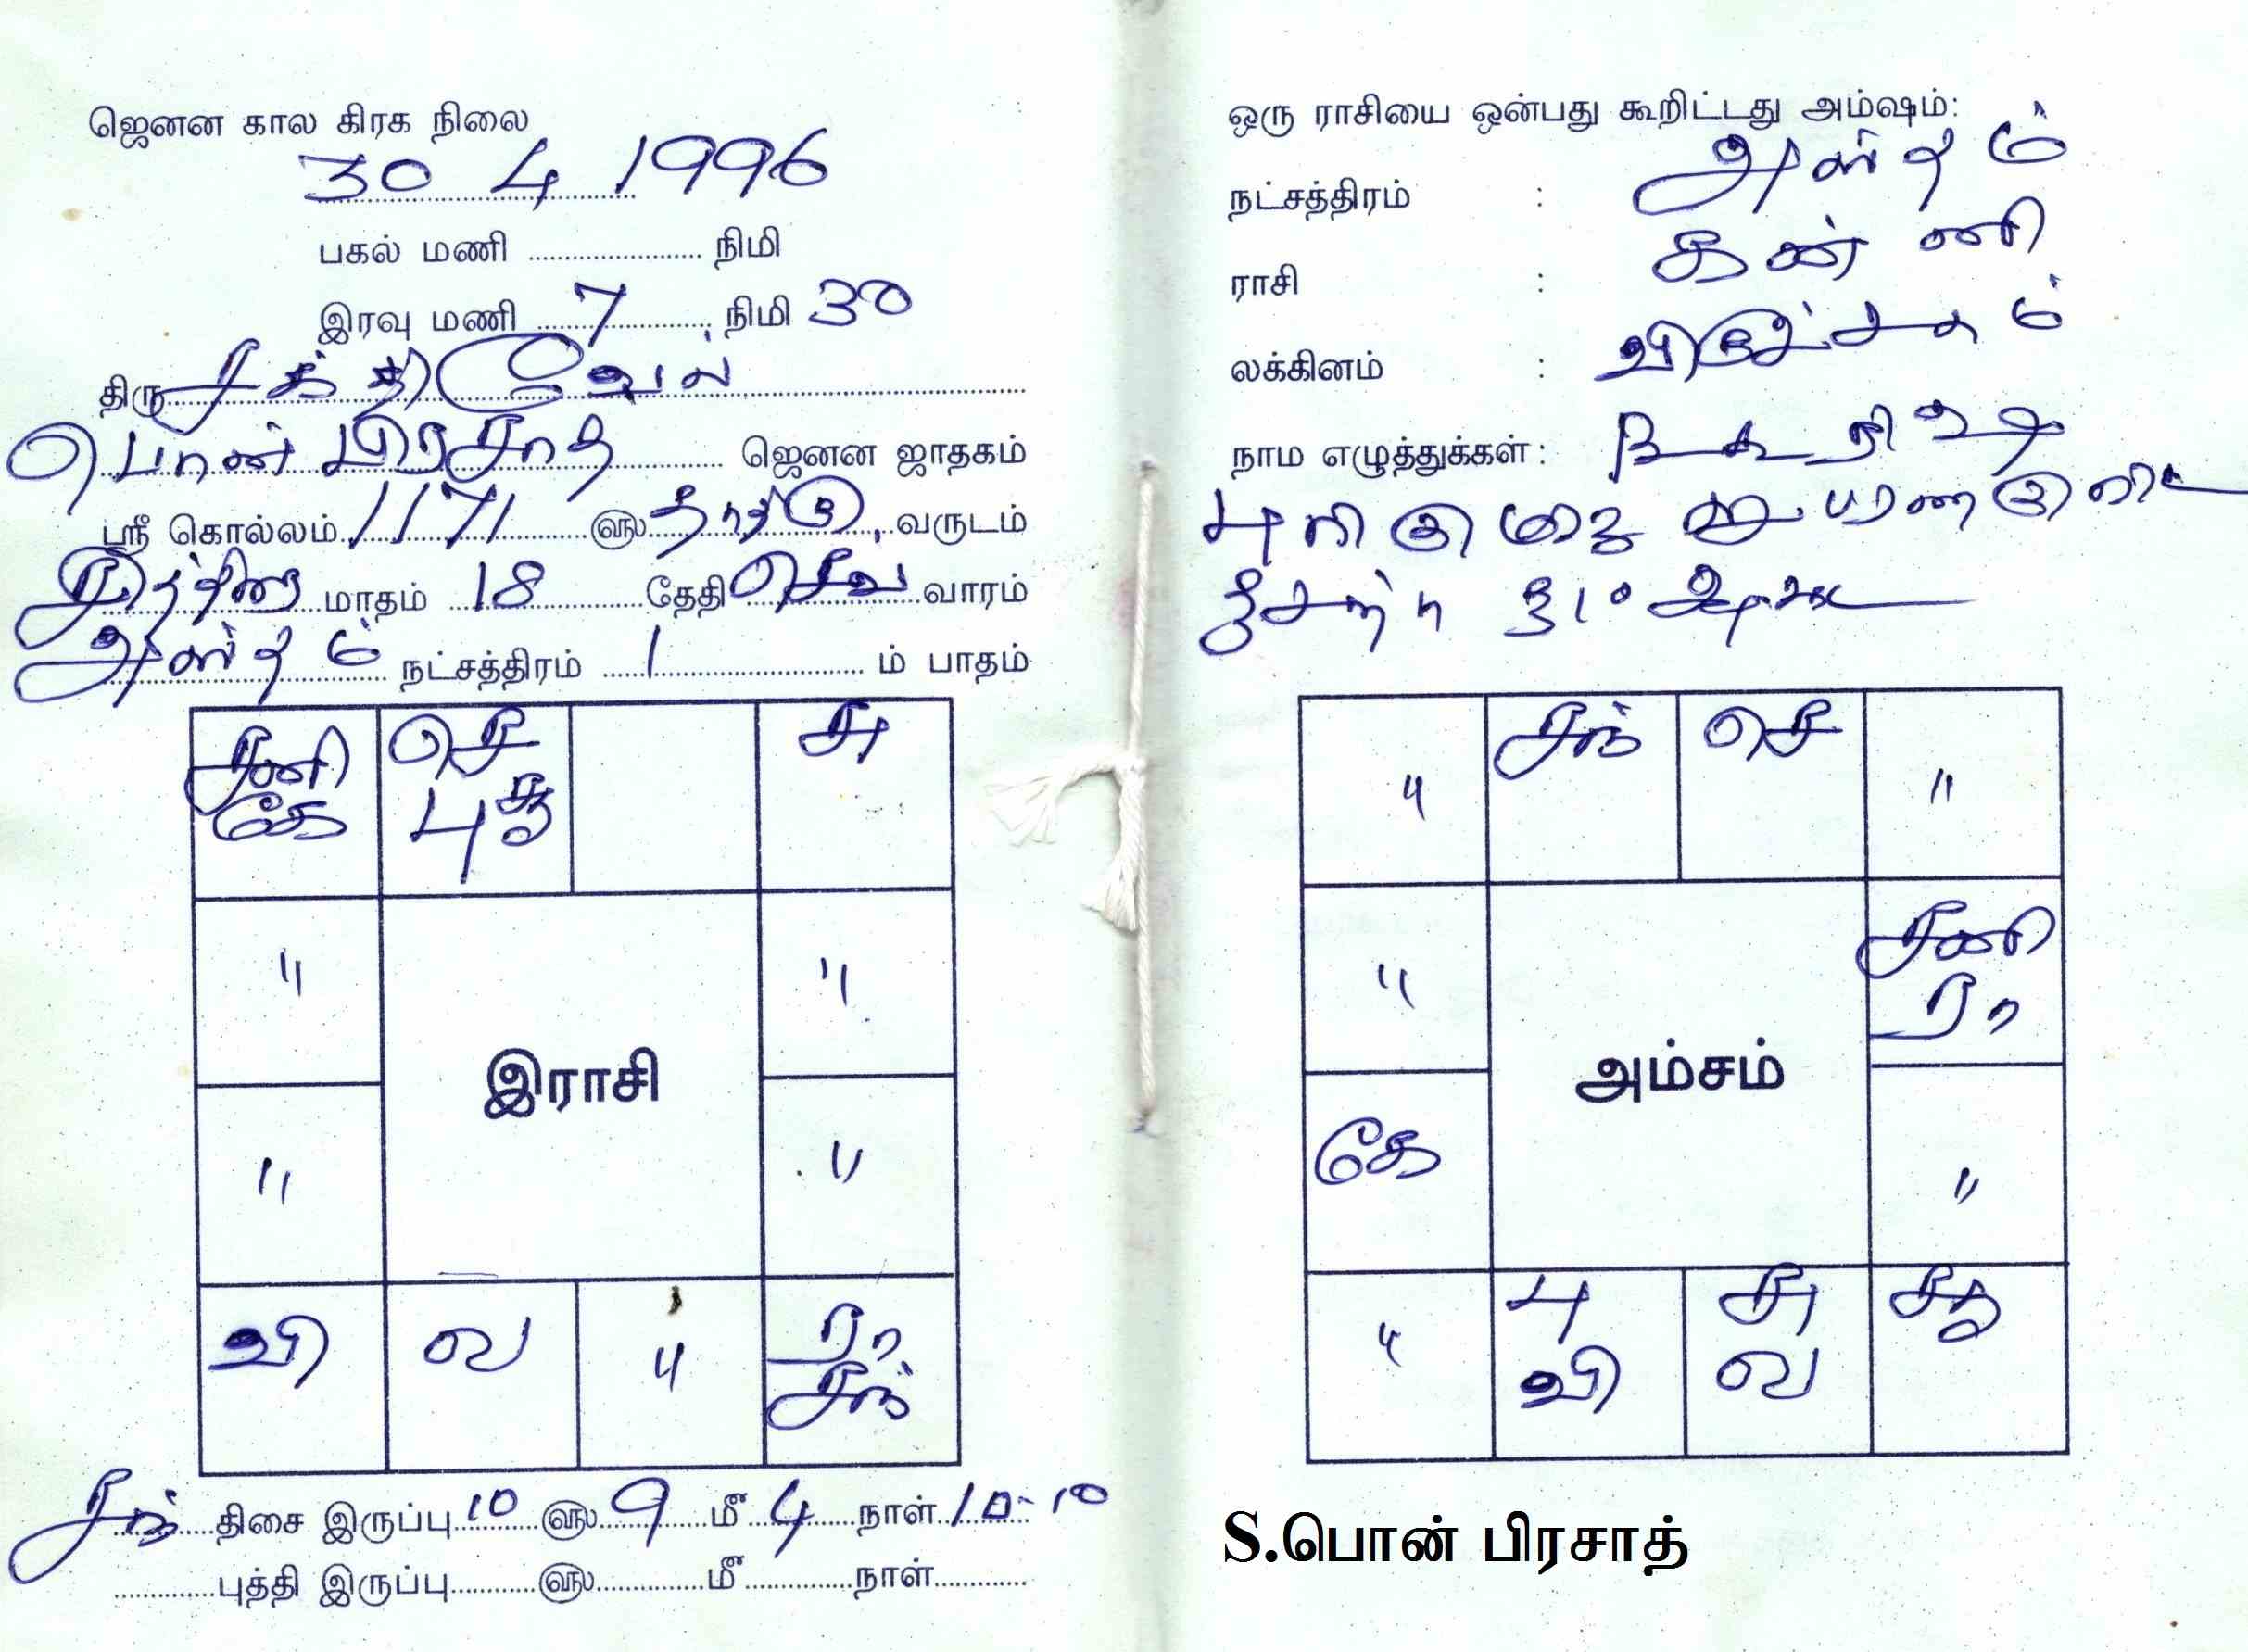 ஜெனன கால கிரக நிலை
30 4 1996
பகல் மணி ............ நிமி
இரவு மணி 7 நிமி 30
திரு சக்திவேல்
பொன் பிரசாத் ஜெனன ஜாதகம்
ஸ்ரீ கொல்லம் 1171 ௵ தாது வருடம்
சித்திரை மாதம் 18 தேதி செவ் வாரம்
அஸ்தம் நட்சத்திரம் 1 ம் பாதம்
சனி
கே
செ
சூ
பு
சு
"
"
இராசி
"
"
வி
ல
"
ரா
சந்
சந் திசை இருப்பு 10 ௵ 9 மீ 4 நாள் 10-10
புத்தி இருப்பு ௵ மீ நாள்
ஒரு ராசியை ஒன்பது கூறிட்டது அம்ஷம்:
நட்சத்திரம் : அஸ்தம்
ராசி : கன்னி
லக்கினம் : விருச்சகம்
நாம எழுத்துக்கள் :
"
சந்
செ
"
"
சனி
ரா
அம்சம்
கே
"
"
பு
வி
சு
ல
சூ
S.பொன் பிரசாத்